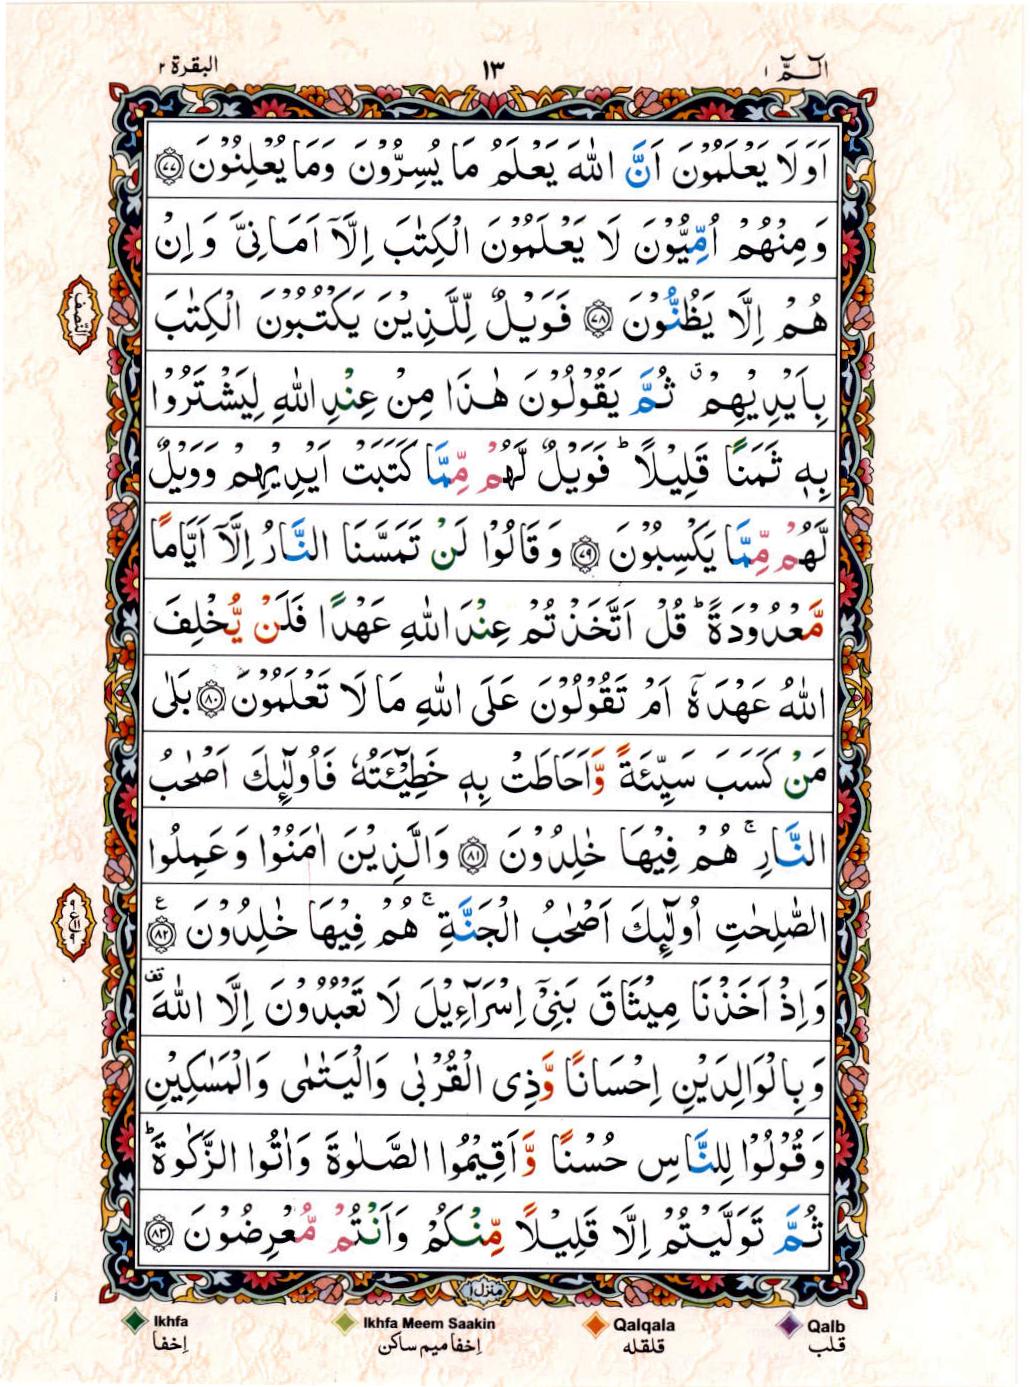 الٓـمّٓ ١
١٣
البقرة ٢
اَوَلَا يَعْلَمُوْنَ اَنَّ اللّٰهَ يَعْلَمُ مَا يُسِرُّوْنَ وَمَا يُعْلِنُوْنَ ﴿٧٧﴾
وَمِنْهُمْ اُمِّيُّوْنَ لَا يَعْلَمُوْنَ الْكِتٰبَ اِلَّآ اَمَانِيَّ وَاِنْ
هُمْ اِلَّا يَظُنُّوْنَ ﴿٧٨﴾ فَوَيْلٌ لِّلَّذِيْنَ يَكْتُبُوْنَ الْكِتٰبَ
النّصف
بِاَيْدِيْهِمْ ۗ ثُمَّ يَقُوْلُوْنَ هٰذَا مِنْ عِنْدِ اللّٰهِ لِيَشْتَرُوْا
بِهٖ ثَمَنًا قَلِيْلًا ؕ فَوَيْلٌ لَّهُمْ مِّمَّا كَتَبَتْ اَيْدِيْهِمْ وَوَيْلٌ
لَّهُمْ مِّمَّا يَكْسِبُوْنَ ﴿٧٩﴾ وَقَالُوْا لَنْ تَمَسَّنَا النَّارُ اِلَّآ اَيَّامًا
مَّعْدُوْدَةً ؕ قُلْ اَتَّخَذْتُمْ عِنْدَ اللّٰهِ عَهْدًا فَلَنْ يُّخْلِفَ
اللّٰهُ عَهْدَهٗٓ اَمْ تَقُوْلُوْنَ عَلَى اللّٰهِ مَا لَا تَعْلَمُوْنَ ﴿٨٠﴾ بَلٰى
مَنْ كَسَبَ سَيِّئَةً وَّاَحَاطَتْ بِهٖ خَطِيْٓئَتُهٗ فَاُولٰٓئِكَ اَصْحٰبُ
النَّارِ ۚ هُمْ فِيْهَا خٰلِدُوْنَ ﴿٨١﴾ وَالَّذِيْنَ اٰمَنُوْا وَعَمِلُوا
الصّٰلِحٰتِ اُولٰٓئِكَ اَصْحٰبُ الْجَنَّةِ ۚ هُمْ فِيْهَا خٰلِدُوْنَ ﴿٨٢﴾ ع
وَاِذْ اَخَذْنَا مِيْثَاقَ بَنِيْٓ اِسْرَآءِيْلَ لَا تَعْبُدُوْنَ اِلَّا اللّٰهَ قف
وَبِالْوَالِدَيْنِ اِحْسَانًا وَّذِى الْقُرْبٰى وَالْيَتٰمٰى وَالْمَسٰكِيْنِ
وَقُوْلُوْا لِلنَّاسِ حُسْنًا وَّاَقِيْمُوا الصَّلٰوةَ وَاٰتُوا الزَّكٰوةَ ؕ
ثُمَّ تَوَلَّيْتُمْ اِلَّا قَلِيْلًا مِّنْكُمْ وَاَنْتُمْ مُّعْرِضُوْنَ ﴿٨٣﴾
منزل ١
Ikhfa Ikhfa Meem Saakin Qalqala Qalb
اِخفا اِخفا میم ساکن قلقله قلب